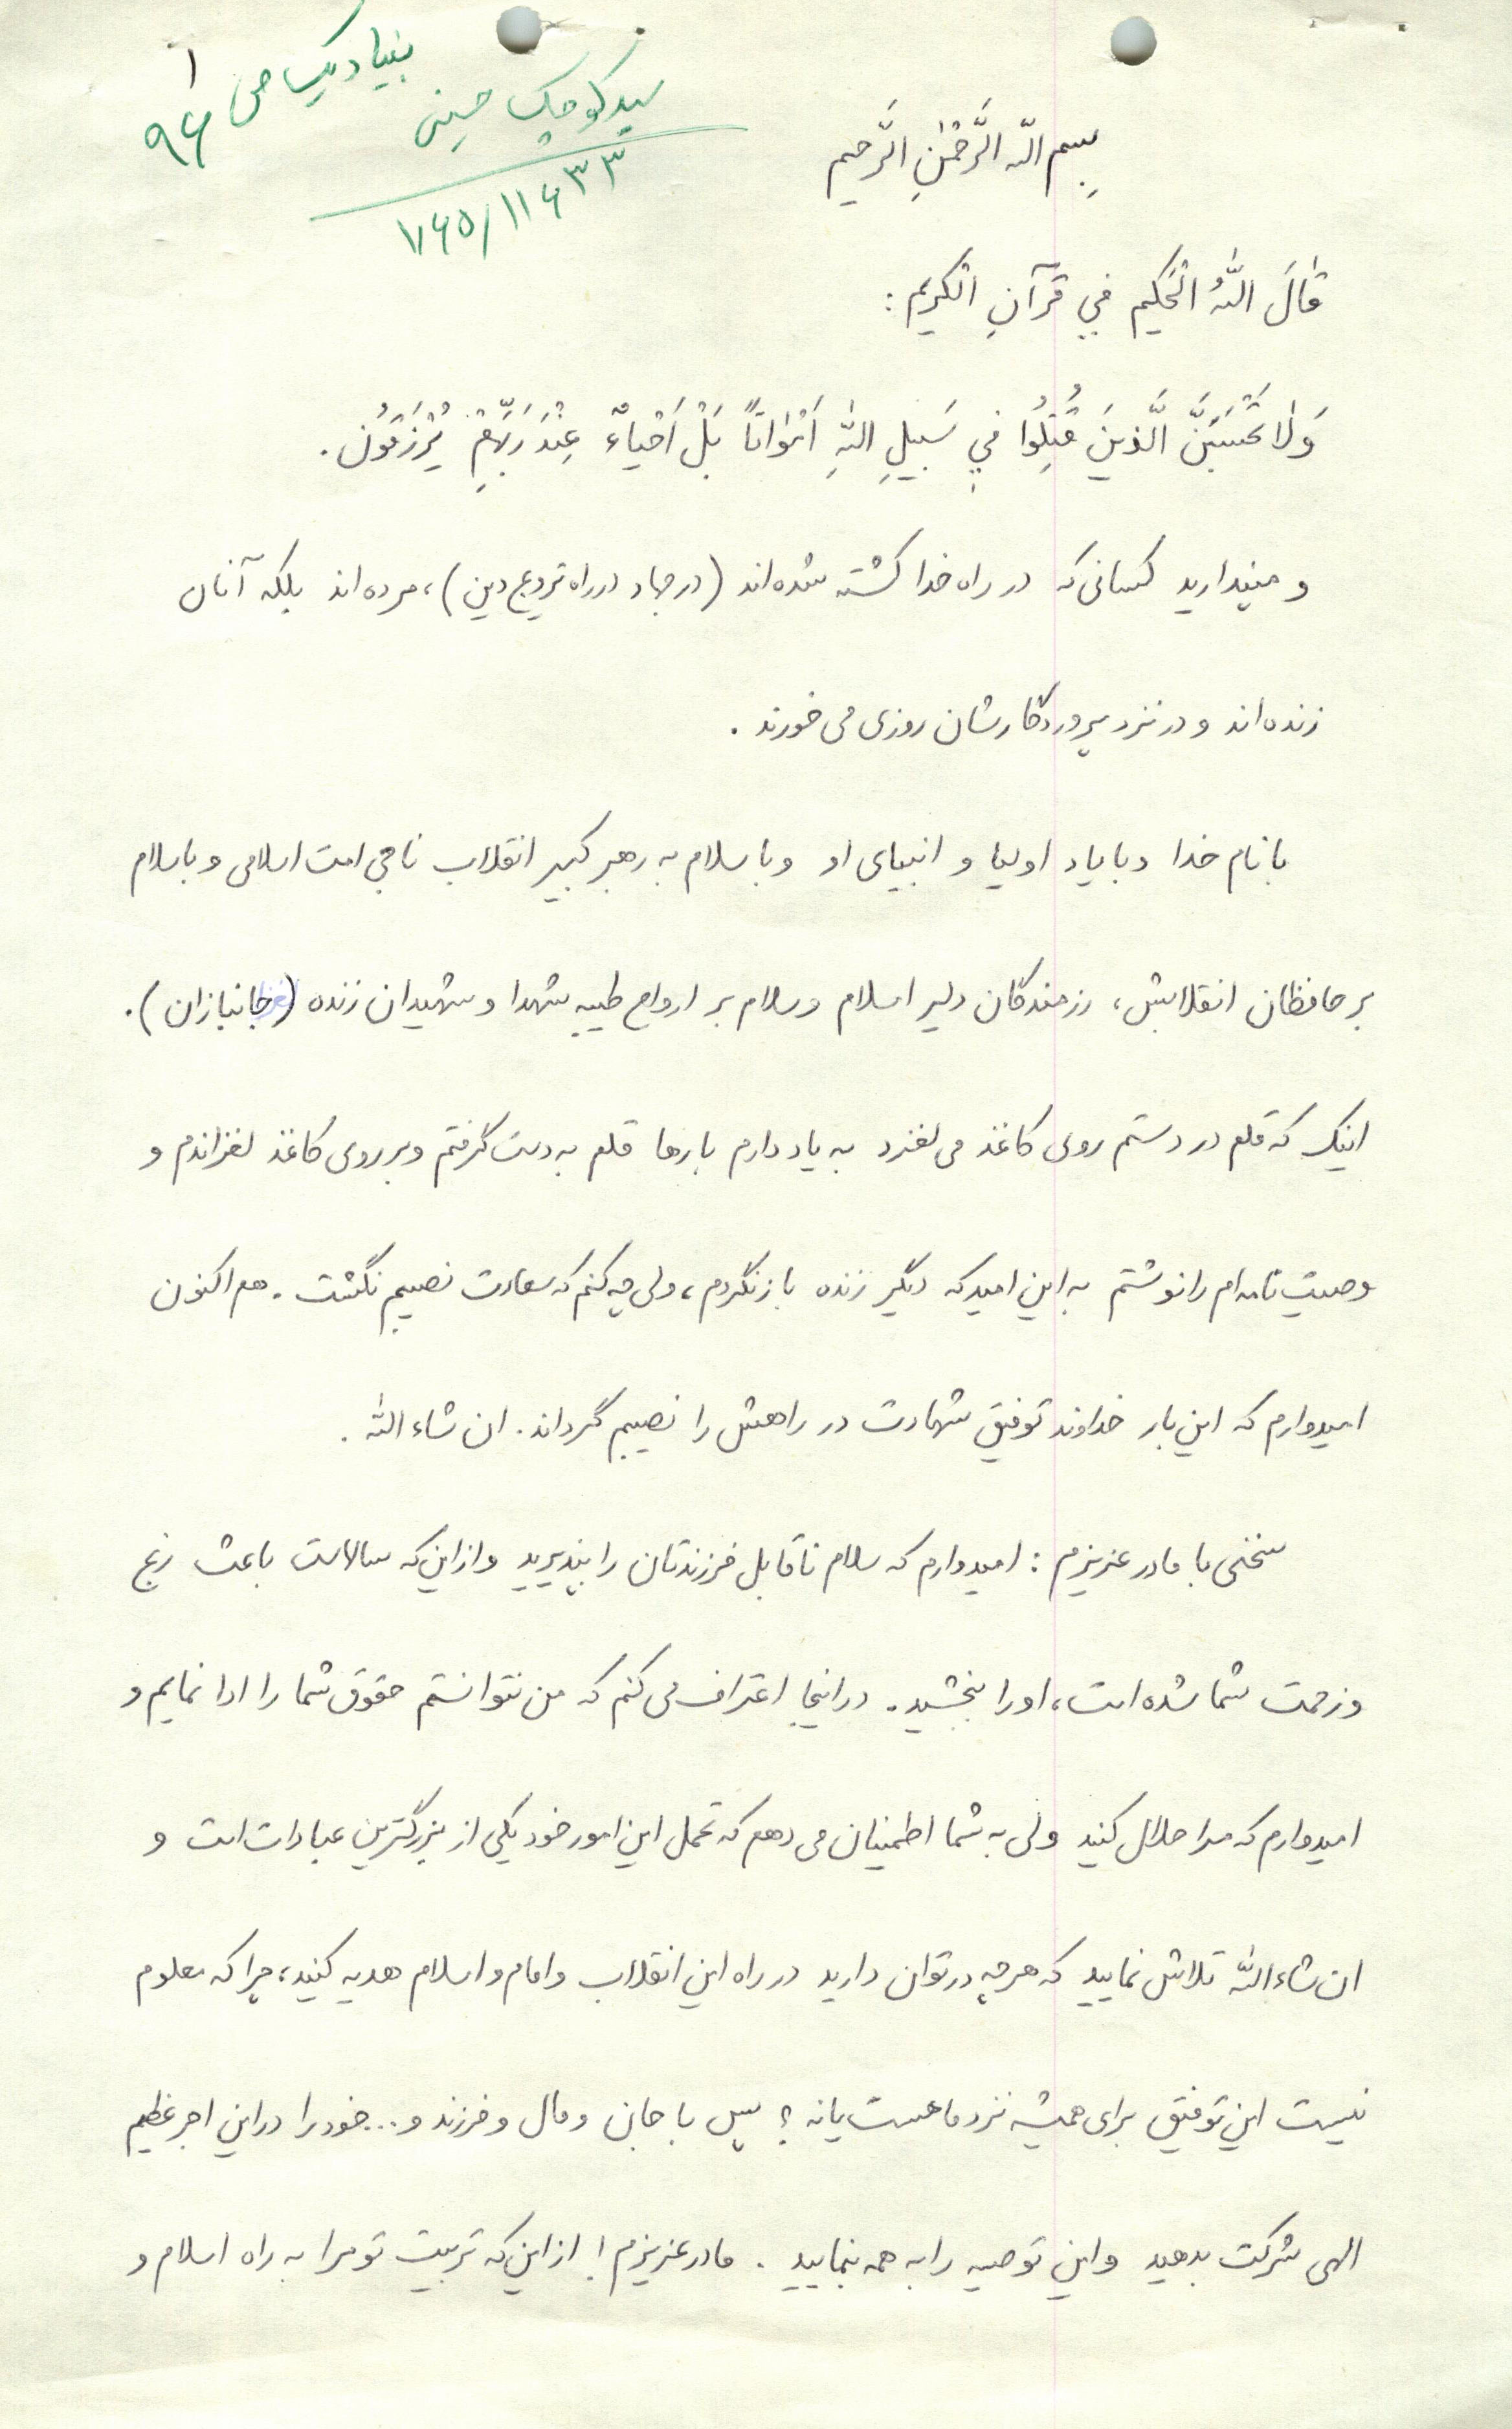 ۱
بنیاد یکسا ص ۹۶
سید کوچک حسینی
۷۶۵/۱۱۶۳۳
بِسم اللّه الرَّحْمٰنِ الرَّحیم
قٰالَ اللّٰهُ الْحَکیم فِي قُرآنِ الْکَریم :
وَلٰا تَحْسَبَنَّ الَّذینَ قُتِلُوا فِي سَبیلِ اللّٰهِ اَمْوٰاتاً بَلْ اَحْیٰاءٌ عِنْدَ رَبِّهِمْ یُرْزَقُون .
و مپندارید کسانی که در راه خدا کشته شده‌اند (در جهاد در راه ترویج دین)، مرده‌اند بلکه آنان
زنده‌اند و در نزد پروردگارشان روزی می خورند .
با نام خدا و با یاد اولیا و انبیای او و با سلام به رهبر کبیر انقلاب ناجی امت اسلامی و با سلام
بر حافظان انقلابش، رزمندگان دلیر اسلام و سلام بر ارواح طیبه شهدا و شهیدان زنده (جانبازان).
اینک که قلم در دستم روی کاغذ می لغزد به یاد دارم بارها قلم به دست گرفتم و بر روی کاغذ لغزاندم و
وصیت نامه‌ام را نوشتم به این امید که دیگر زنده باز نگردم، ولی چه کنم که سعادت نصیبم نگشت . هم اکنون
امیدوارم که این بار خداوند توفیق شهادت در راهش را نصیبم گرداند . ان شاء اللّٰه .
سخنی با مادر عزیزم : امیدوارم که سلام ناقابل فرزندتان را بپذیرید و از این که سالاست باعث رنج
و زحمت شما شده است، او را ببخشید . در اینجا اعتراف می کنم که من نتوانستم حقوق شما را ادا نمایم و
امیدوارم که مرا حلال کنید ولی به شما اطمینان می دهم که تحمل این امور خود یکی از بزرگترین عبادات است و
ان شاء اللّٰه تلاش نمایید که هر چه در توان دارید در راه این انقلاب و امام و اسلام هدیه کنید، چرا که معلوم
نیست این توفیق برای همیشه نزد ما هست یا نه ؟ پس با جان و مال و فرزند و ... خود را در این اجر عظیم
الهی شرکت بدهید و این توصیه را به همه بنمایید . مادر عزیزم ! از این که تربیت تو مرا به راه اسلام و